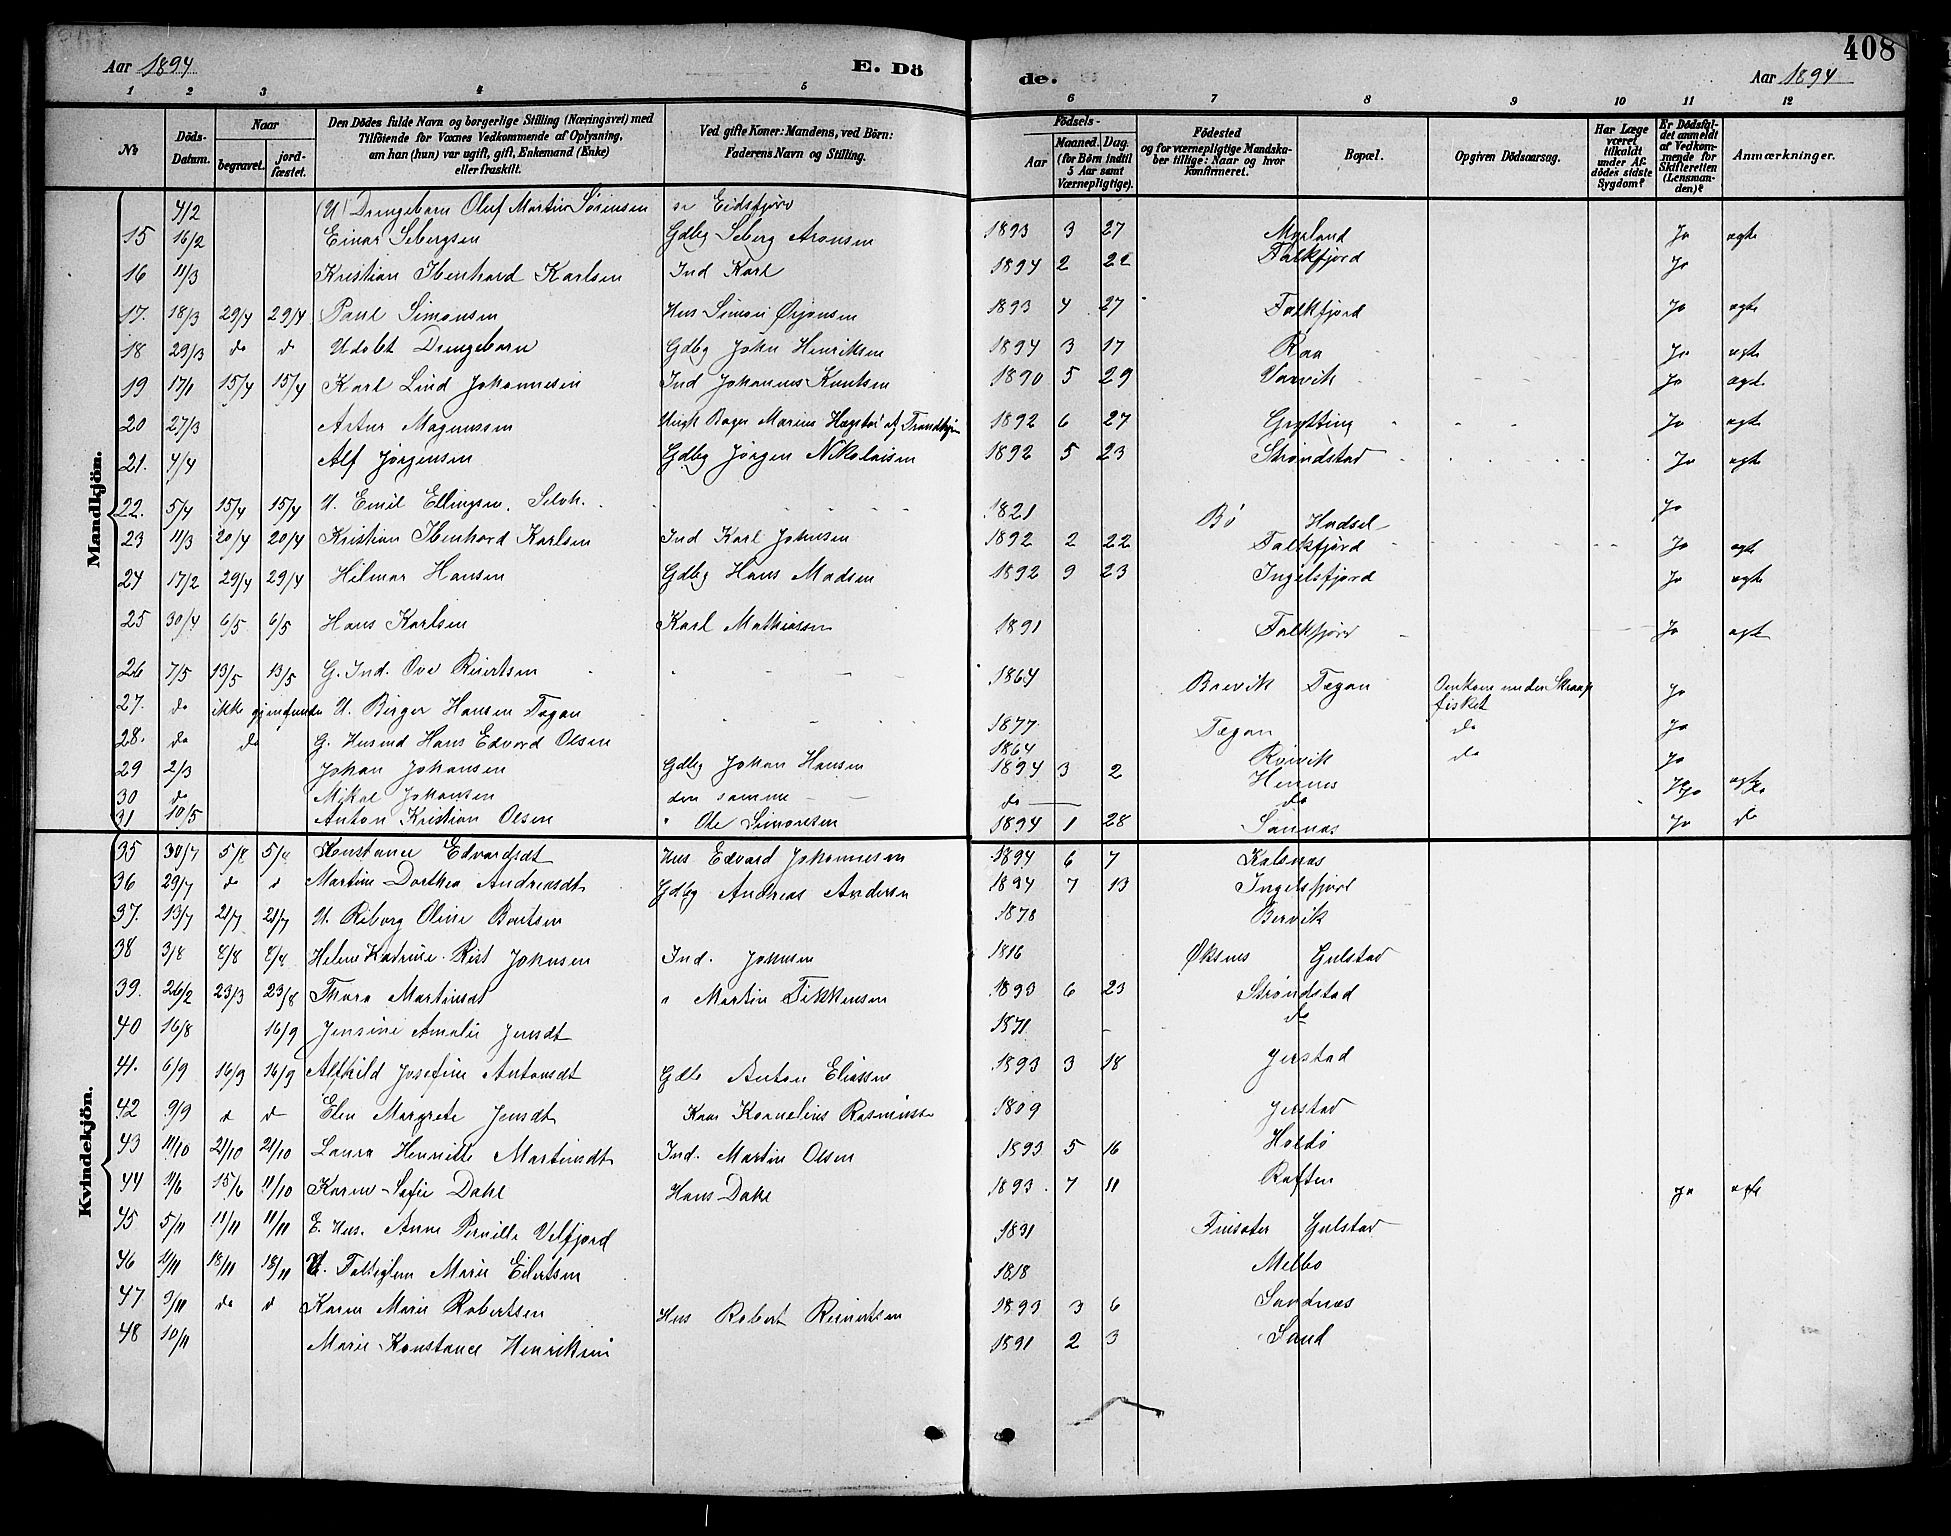 408
Aar 1894 E. Döde. Aar 1894
1 2 3 4 5 6 7 8 9 10 11 12
No
Döds-Datum.
Naar begravet. jordfæstet.
Den Dödes fulde Navn og borgerlige Stilling (Næringsvei) med Tilföiende for Voxnes Vedkommende af Oplysning, om han (hun) var ugift, gift, Enkemand (Enke) eller fraskilt.
Ved gifte Koner: Mandens, ved Börn: Faderens Navn og Stilling.
Födsels- Aar Maaned. Dag. (for Börn indtil 5 Aar samt Værnepligtige).
Födested og for værnepligtige Mandskaber tillige: Naar og hvor konfirmeret.
Bopæl.
Opgiven Dödsaarsag.
Har Læge været tilkaldt under Afdödes sidste Sygdom?
Er Dödsfaldet anmeldt af Vedkommende for Skifteretten (Lensmanden)?
Anmærkninger.
Mandkjön.
4/2 (U) Drengebarn Oluf Martin Sørensen Eidsfjord
15 16/2 Einar Sebergsen Gdbg Seberg Aronsen 1893 3 27 Myrland Jo ægte
16 11/3 Kristian Ibenhard Karlsen Ind Karl 1894 2 22 Falkfjord Jo
17. 18/3 29/4 29/4 Paul Simonsen Hus Simon Ørjansen 1893 4 27 Falkfjord Jo ægte
18 29/3 do d Udøbt Drengebarn Gdbg John Henriksen 1894 3 17 Raa Jo ægte
19 17/1 15/4 15/4 Karl Lind Johannesen Ind Johannes Knutsen 1890 5 29 Vaavik Jo ægt
20 27/3 Artur Magnussen Ungk Bager Marius af Trondhjem 1892 6 27 Grytting Jo ægte
21. 4/4 Alf Jørgensen Gdbg Jørgen Nikolaisen 1892 5 23 Strøndstad Jo ægte
22. 5/4 15/4 15/4 U. Emil Ellingsen. Selvh. 1821 Bø Hadsel Jo
23 11/3 20/4 20/4 Kristian Ibenhard Karlsen Ind Karl Johnsen 1892 2 22 Falkfjord Jo ægte
24 17/2 29/4 29/4 Hilmar Hansen Gdbg Hans Madsen 1892 9 23 Ingelsfjord Jo ægte
25 30/4 6/5 6/5 Hans Karlsen Karl Mathiassen 1891 Falkfjord Jo ægte
26 7/5 13/5 13/5 G. Ind. Ove Reiertsen 1864 Brevik Tægan Omkom under fisket Jo
27. do ikke gjenfunde U. Birger Hansen Tægan 1877 Tægan do Jo
28. do do G. Husmd Hans Edvard Olsen 1864 Røivik do Jo
29 2/3 Johan Johansen Gdbg Johan Hansen 1894 3 2 Hennes Jo ægte
30 do Mikal Johansen den samme do do Jo do
31 10/5 Anton Kristian Olsen " Ole Simonsen 1894 1 28 Sannas Jo do
Kvindekjön.
35 30/7 5/8 5/8 Konstance Edvardsdt Hus Edvard Johannesen 1894 6 7 Kalsnæs
36 29/7 d d Martine Dorthea Andreasdt Gdbg Andreas Andersen 1894 7 13 Ingelsfjord
37. 13/7 21/7 21/7 U. Riborg Oline Bentsen 1878 Bervik
38 3/8 8/8 8/8 Helene Katrine Rist Johnsen Ind. Johnsen 1816 Øksnes Gulstad
39. 26/2 23/3 23/8 Thora Martinsdt " Martin Fikkensen 1893 6 23 Strøndstad
40 16/8 16/9 Jensine Amalie Jensdt 1871 do
41. 6/9 16/9 16/9 Alfhild Josefine Antonsdt Gdb Anton Eliassen 1893 3 18 Jerstad
42 9/9 d d Elen Margrete Jensdt Kaar Kornelius Rasmussen 1809 Jerstad
43 11/10 21/10 21/10 Laura Henriette Martinsdt Ind. Martin Olsen 1893 5 16 Holdø
44 1/6 15/6 11/10 Karen Sofie Dahl Hans Dahl 1893 7 11 Raften Jo ægte
45 5/11 11/11 11/11 E. Hus. Anne Pernille Velfjord 1831 Finsæter Gulstad
46 11/11 18/11 18/11 U. Fattiglem Marie Eilertsen 1818 Melbo
47. 9/11 do d Karen Marie Robertsen Hus Robert Reinertsen 1893 3 6 Sandnæs
48 10/11 Marie Konstance Henriksen 1891 2 3 Sand